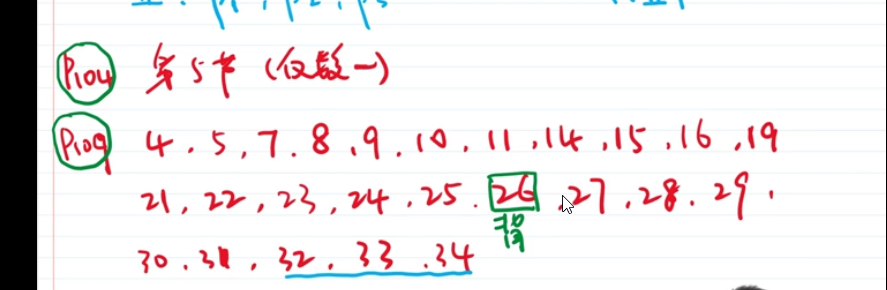 P104 第5节（仅数一）
P109 4、5、7、8、9、10、11、14、15、16、19
21、22、23、24、25、26、27、28、29、
30、31、32、33、34